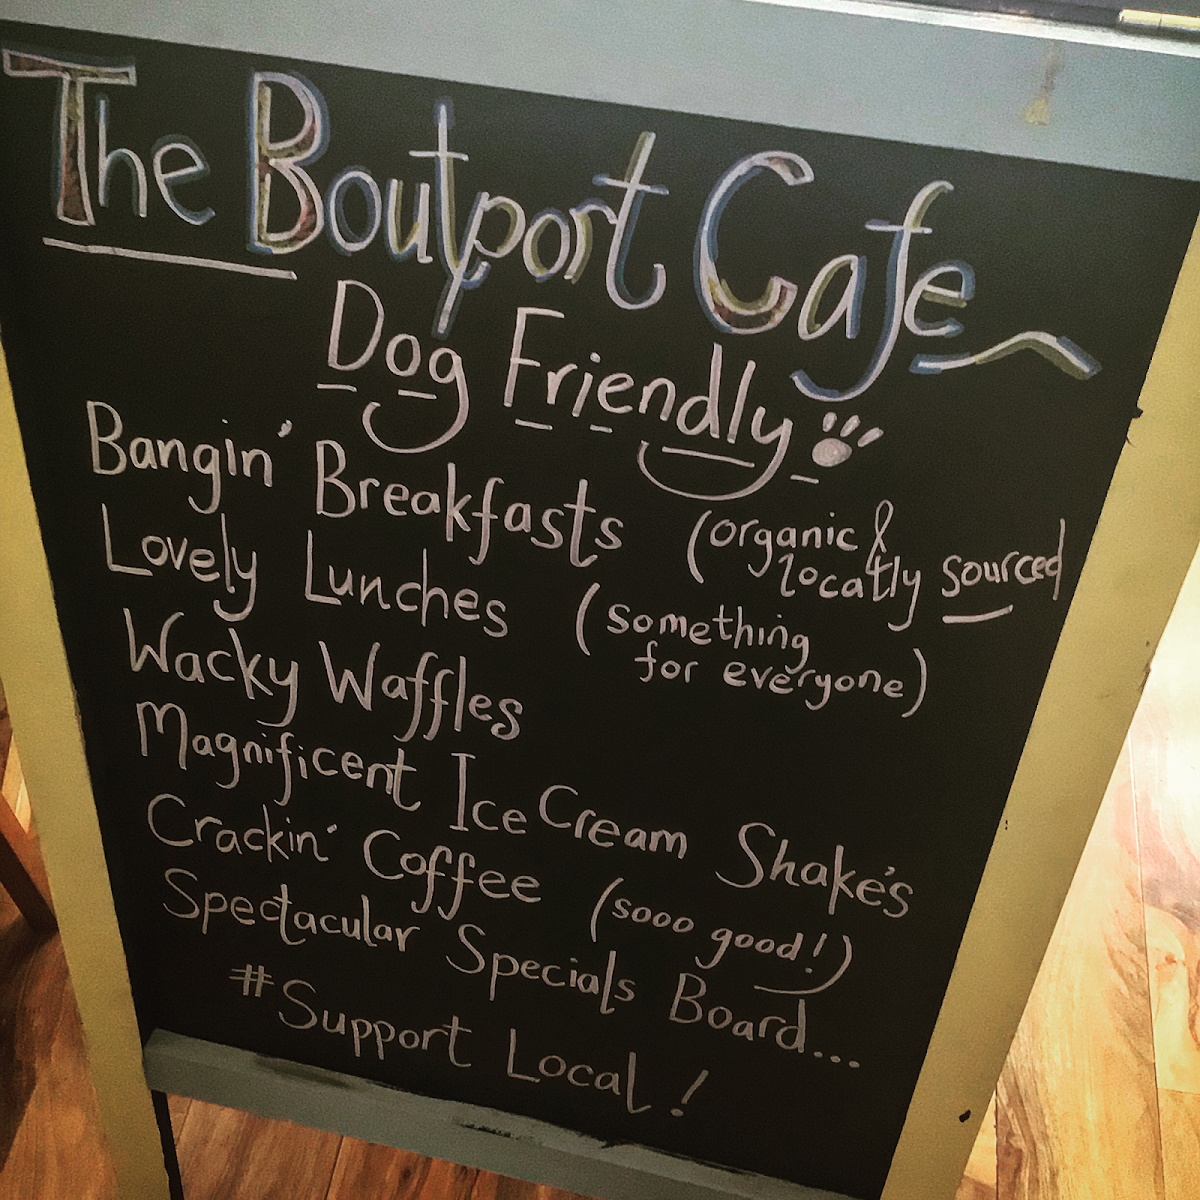 The Boutport Cafe
Dog Friendly
Bangin' Breakfasts (organic &
locally sourced)
Lovely Lunches (something
for everyone)
Wacky Waffles
Magnificent Ice Cream Shake's
Crackin' Coffee (sooo good!)
Spectacular Specials Board...
#Support Local!